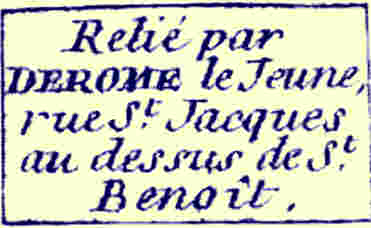 Relié par
DEROME le Jeune,
rue S.t Jacques
au dessus de S.t
Benoît.